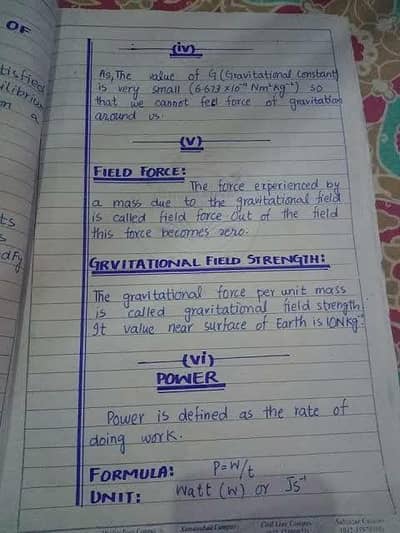 OF
(iv)
As, The value of G (Gravitational Constant)
is very small (6.673 x10⁻¹¹ Nm²kg⁻²) so
that we cannot feel force of gravitation
around us.
(v)
FIELD FORCE:
The force experienced by
a mass due to the gravitational field
is called field force. Out of the field
this force becomes zero.
GRVITATIONAL FIELD STRENGTH:
The gravitational force per unit mass
is called gravitational field strength.
It value near surface of Earth is 10Nkg⁻¹
(vi)
POWER
Power is defined as the rate of
doing work.
FORMULA: P=W/t
UNIT: Watt (W) or Js⁻¹